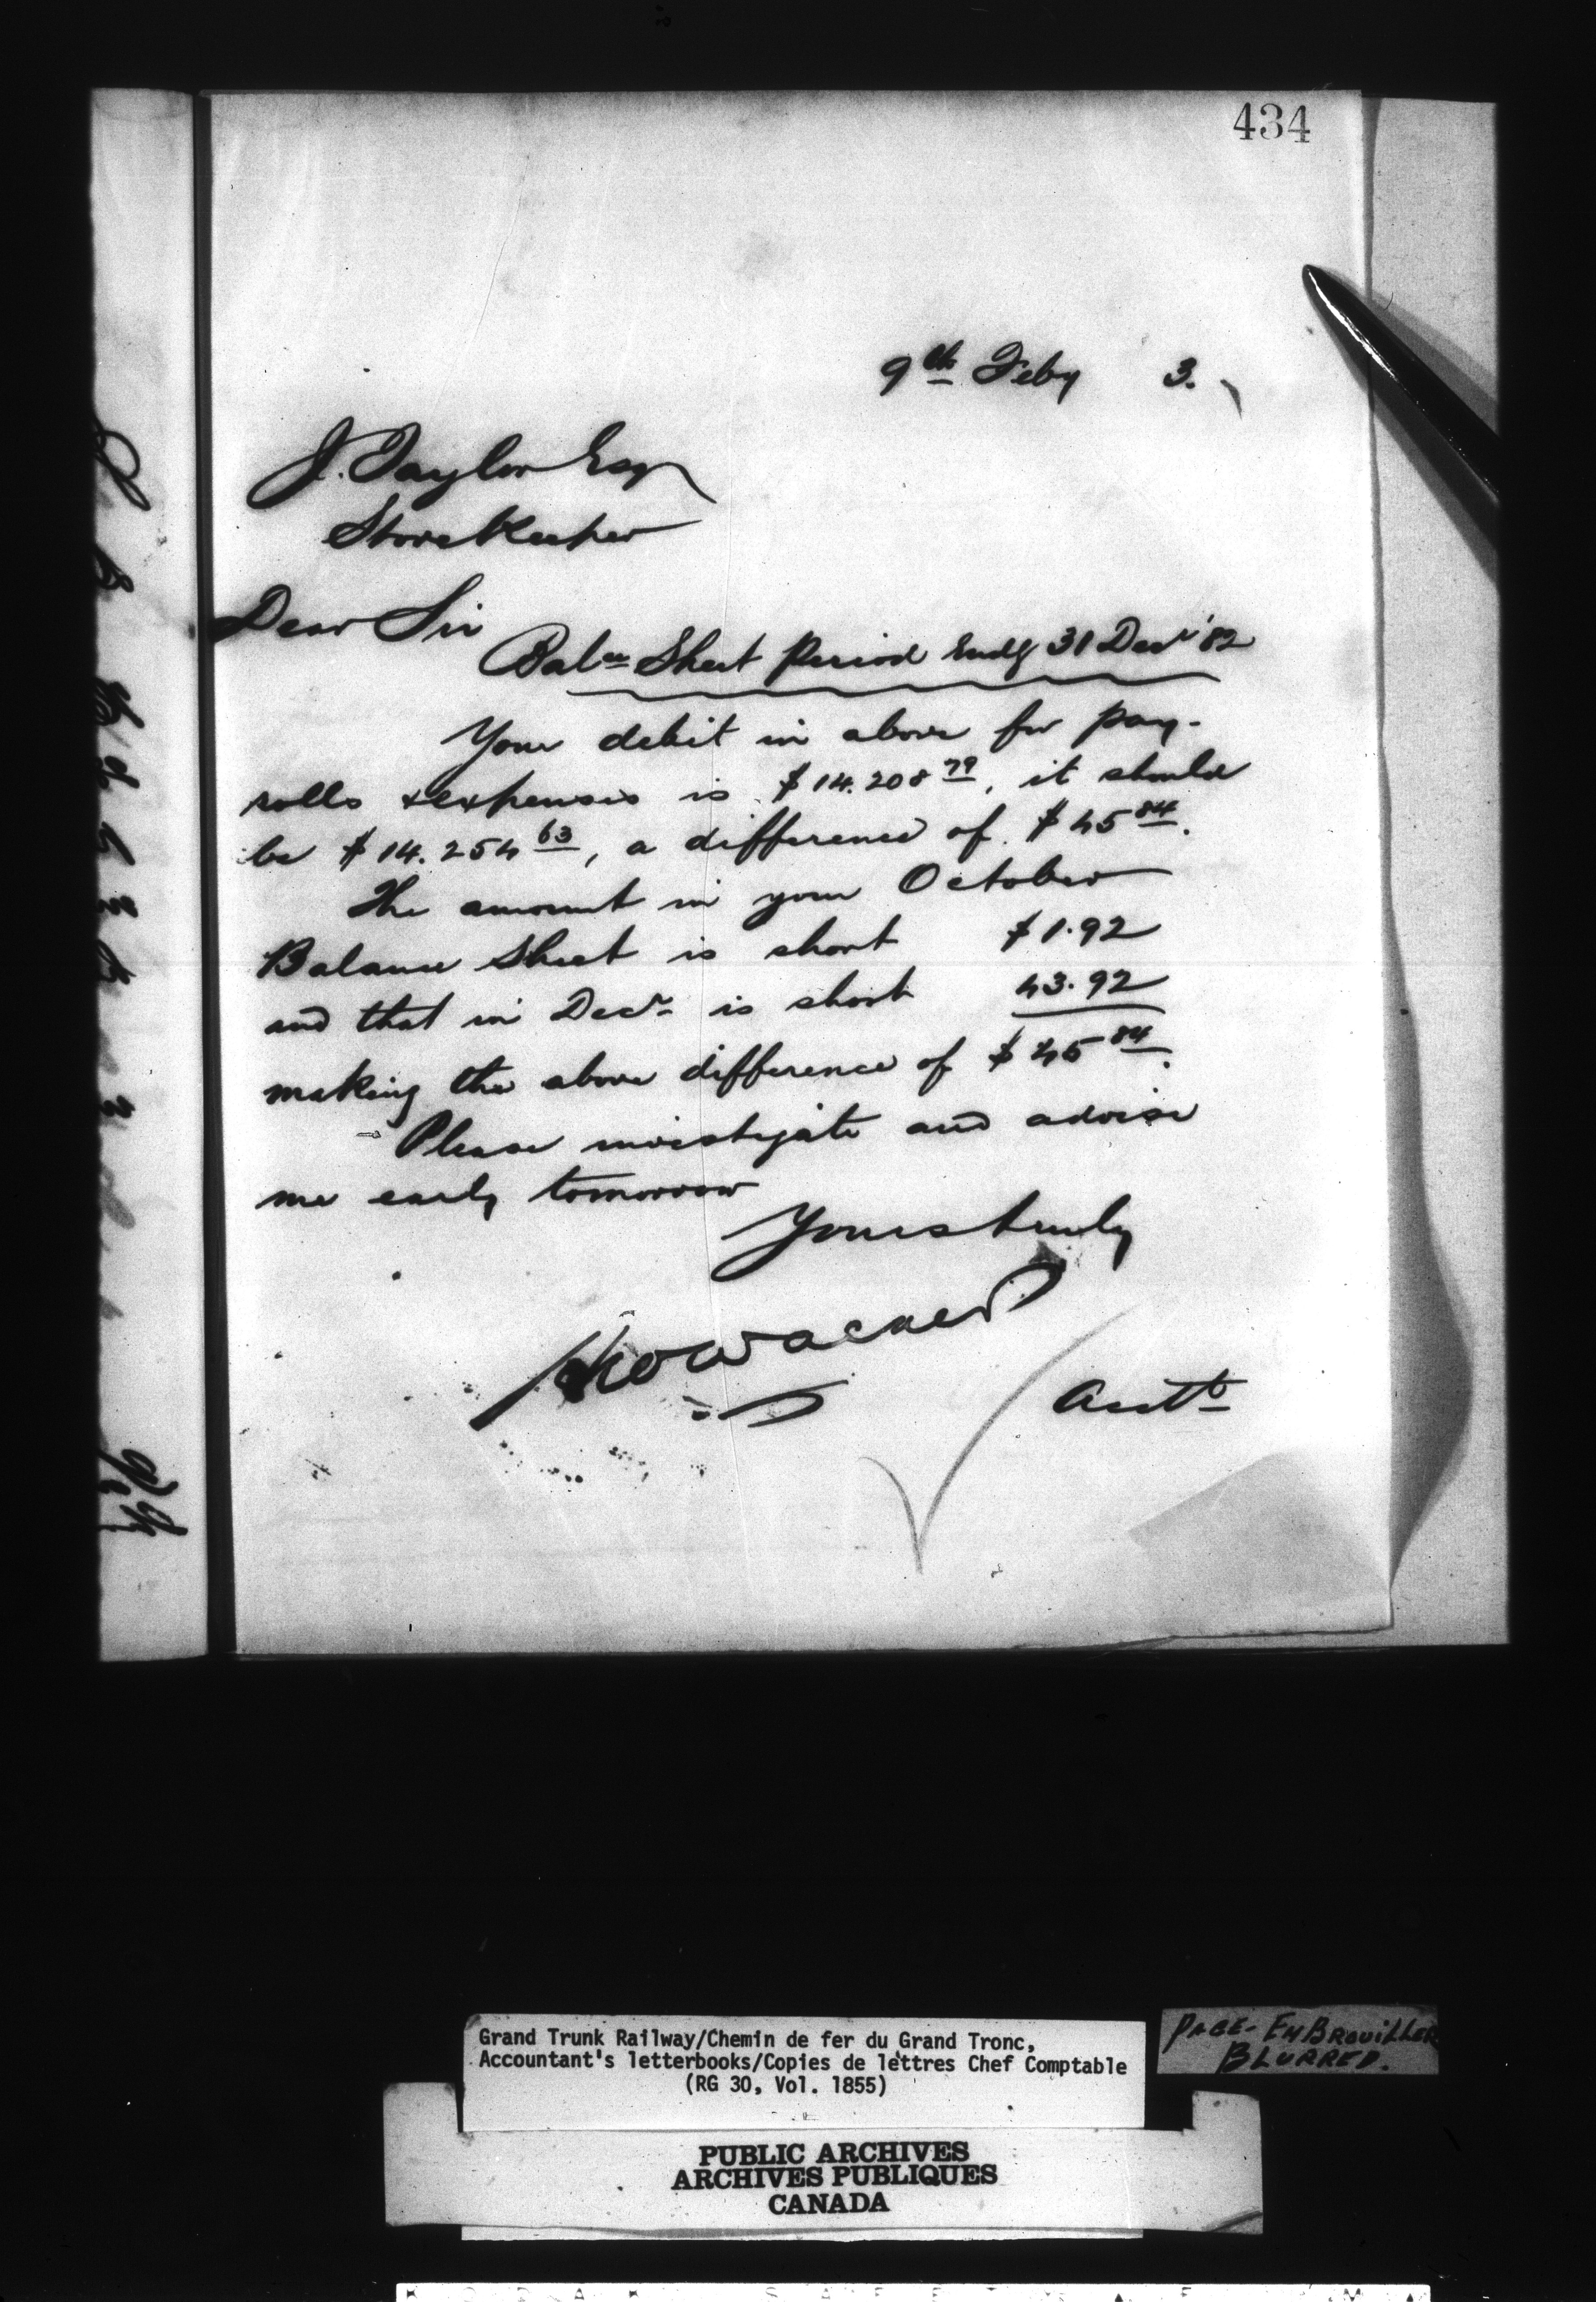 434
9th Feby 3.
J. Taylor Esq
Storekeeper
Dear Sir
Balce Sheet Period Endg 31 Decr '82
Your debit in above for pay-
rolls & expenses is $14.208 79, it should
be $14.254 63, a difference of $45 84.
The amount in your October
Balance Sheet is short $1.92
and that in Decr is short 43.92
making the above difference of $45 84.
Please investigate and advise
me early tomorrow
Yours truly
Actt
Grand Trunk Railway/Chemin de fer du Grand Tronc,
Accountant's letterbooks/Copies de lettres Chef Comptable
(RG 30, Vol. 1855)
PAGE - EMBROUILLER
BLURRED.
PUBLIC ARCHIVES
ARCHIVES PUBLIQUES
CANADA